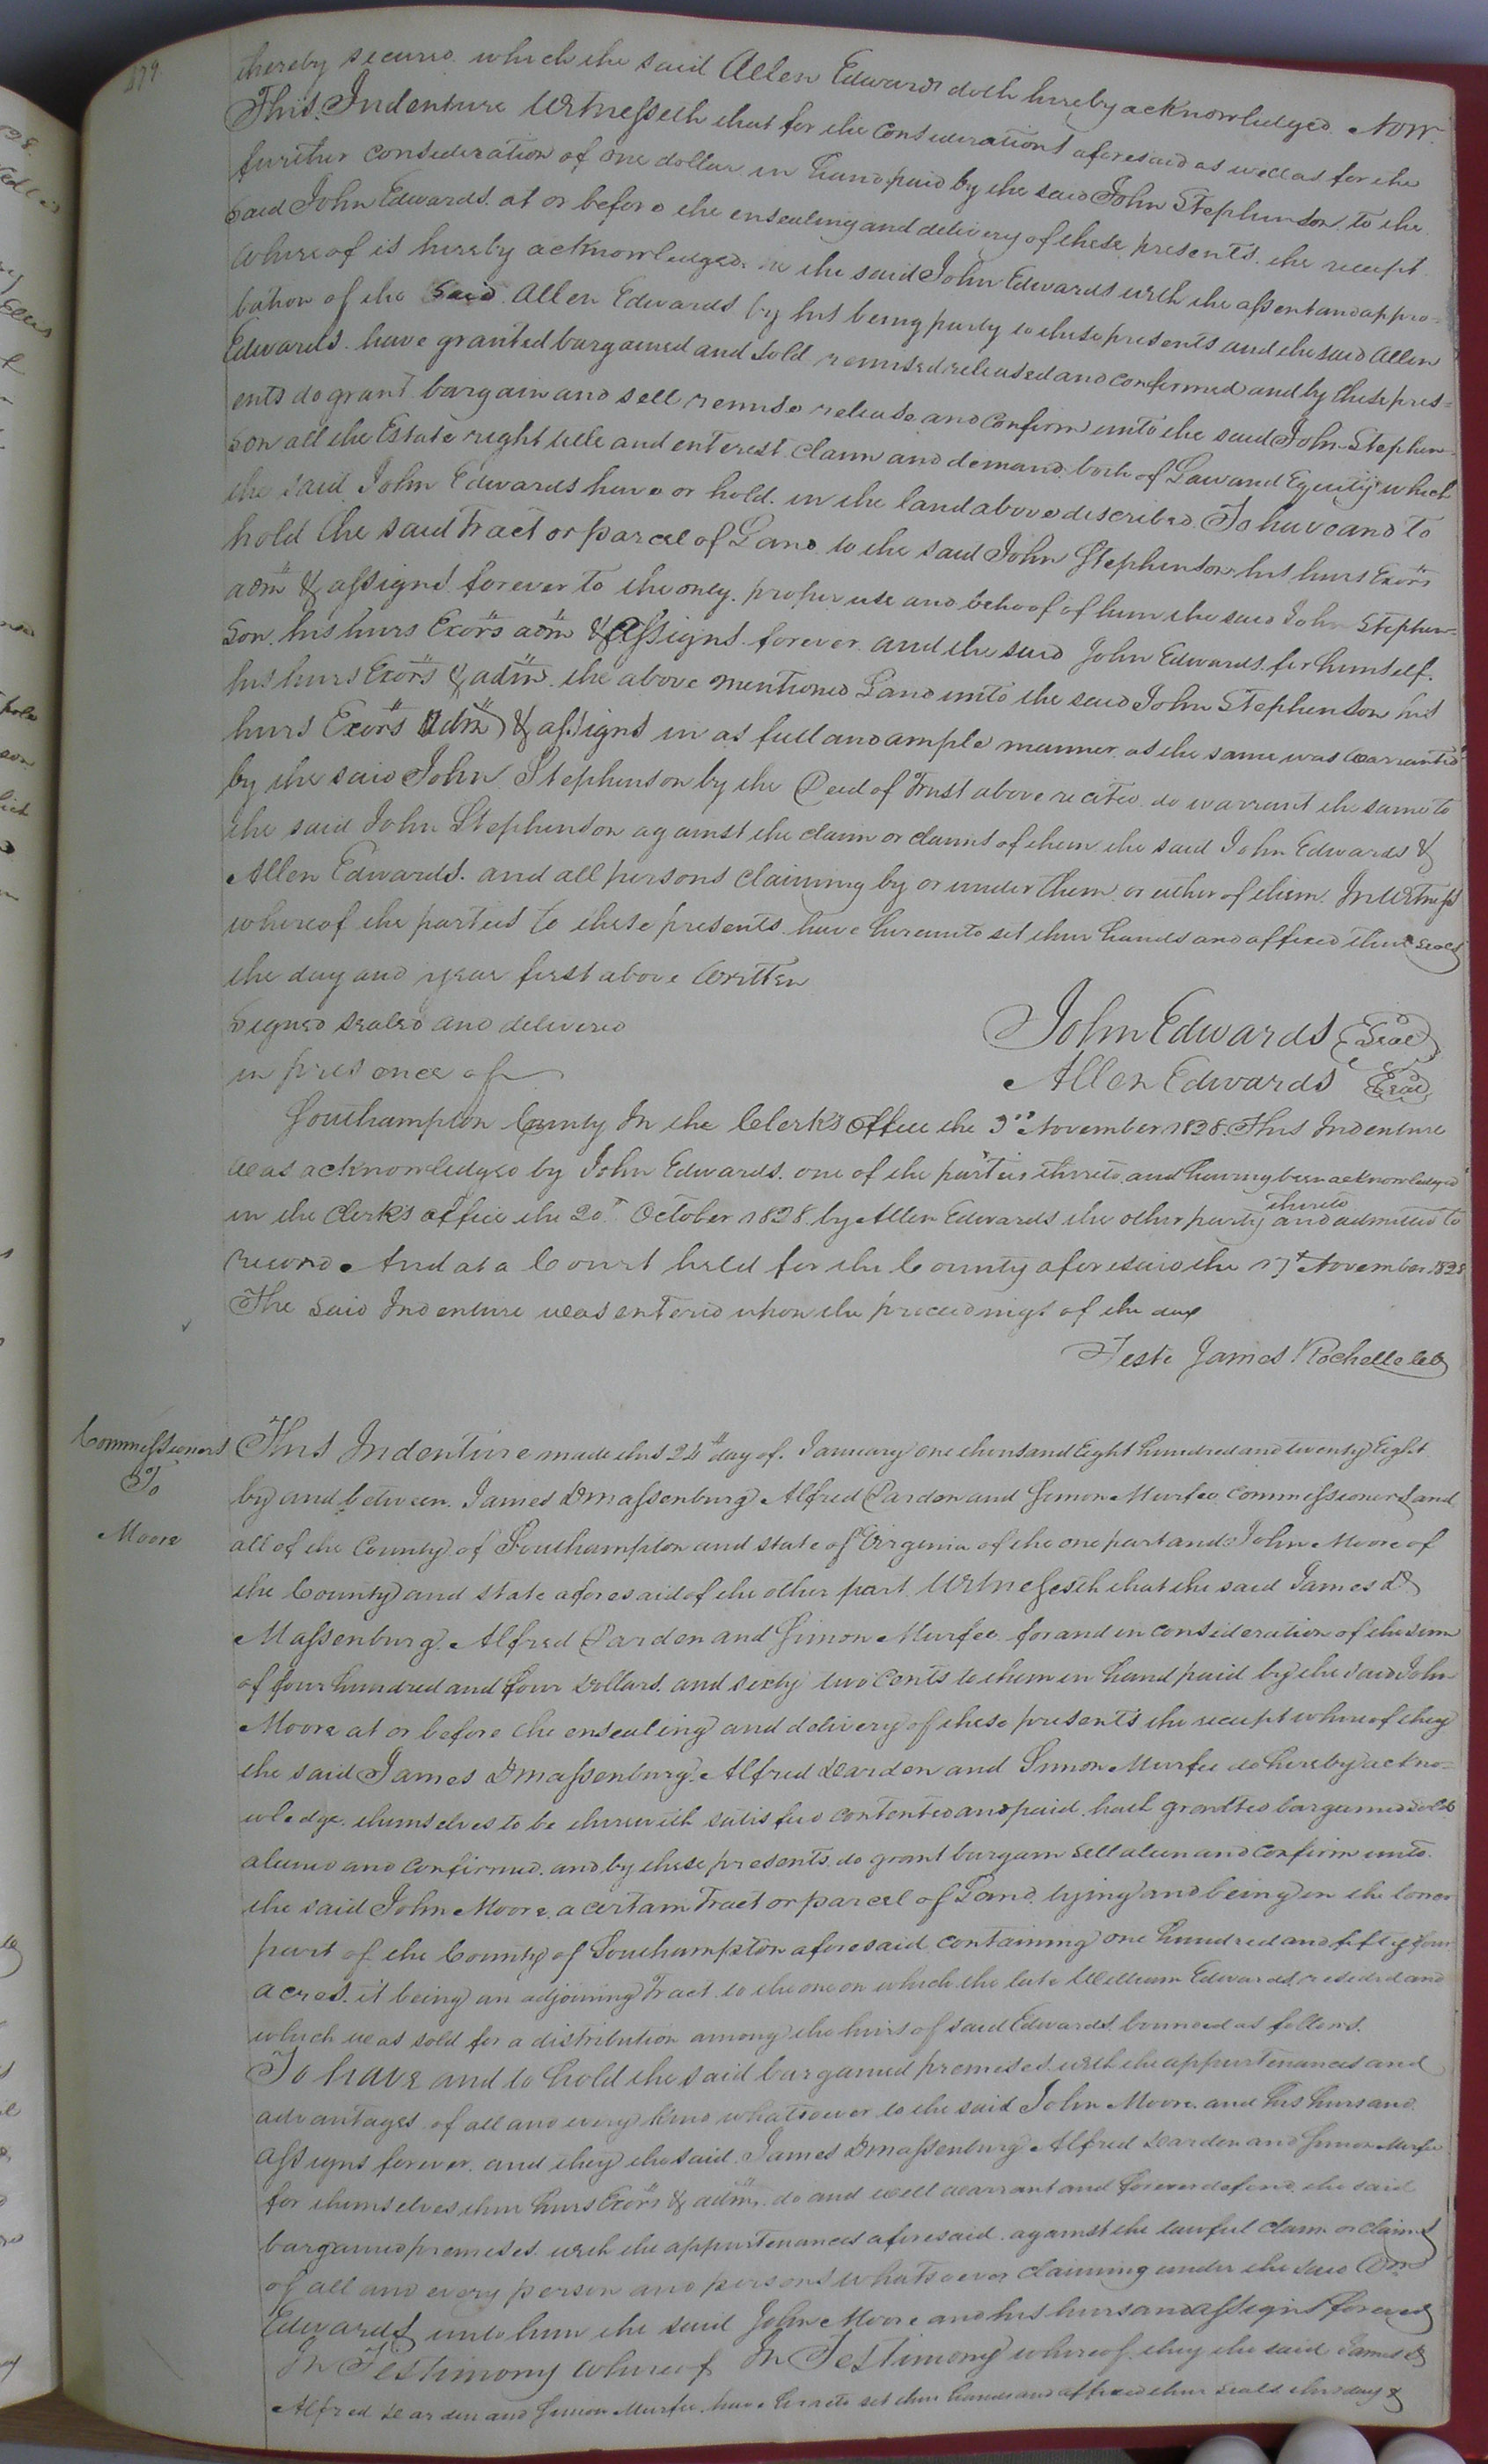 279.
thereby secured which the said Allen Edwards doth hereby acknowledged. Now
This Indenture Witnesseth that for the considerations aforesaid as well as for the
further consideration of one dollar in hand paid by the said John Stephenson to the
said John Edwards at or before the ensealing and delivery of these presents the receipt
whereof is hereby acknowledged the said John Edwards with the assent and appro=
bation of the said Allen Edwards by his being party to these presents and the said Allen
Edwards have granted bargained and sold remised released and confirmed and by these pres=
ents do grant bargain and sell remise release and confirm unto the said John Stephen=
son all the Estate right title and enterest claim and demand both of Law and Equity which
the said John Edwards have or hold in the land above described. To have and to
hold the said tract or parcel of Land to the said John Stephenson his heirs Exors
adm & assigns forever to the only proper use and behoof of him the said John Stephen=
son his heirs Exors adm & assigns forever and the said John Edwards for himself
his heirs Exors & adm the above mentioned Land unto the said John Stephenson his
heirs Exors Adm & assigns in as full and ample manner as the same was warranted
by the said John Stephenson by the Deed of Trust above recited do warrant the same to
the said John Stephenson against the claim or claims of them the said John Edwards &
Allen Edwards. and all persons claiming by or under them or either of them. In Witness
whereof the parties to these presents have hereunto set their hands and affixed their seals
the day and year first above Written
Signed sealed and delivered
in presence of
John Edwards Seal
Allen Edwards Seal
Southampton County In the Clerk's Office the 3rd November 1828. This Indenture
was acknowledged by John Edwards one of the parties thereto and having been acknowledged
in the Clerks office the 20th October 1828 by Allen Edwards the other party thereto and admitted to
record. And at a Court held for the County aforesaid the 17th November 1828
The said Indenture was entered upon the proceedings of the day
Teste James Rochelle
Commissioners
To
Moore
This Indenture made this day of January one thousand Eight hundred and twenty Eight
by and between James D Massenburg Alfred Darden and Simon Murfee Commissioners and
all of the County of Southampton and state of Virginia of the one part and John Moore of
the County and state aforesaid of the other part Witnesseth that the said James D
Massenburg Alfred Darden and Simon Murfee for and in consideration of the sum
of four hundred and four Dollars and sixty two cents to them in hand paid by the said John
Moore at or before the ensealing and delivery of these presents the receipt whereof they
the said James D Massenburg Alfred Darden and Simon Murfee do hereby ackno=
wledge themselves to be therewith satisfied contented and paid hath granted bargained sold
aliened and confirmed and by these presents do grant bargain sell alien and confirm unto
the said John Moore a certain Tract or parcel of Land lying and being in the lower
part of the County of Southampton aforesaid containing one hundred and fifty four
acres it being an adjoining Tract to the one on which the late William Edwards resided and
which was sold for a distribution among the heirs of said Edwards bounded as follows.
To have and to hold the said bargained premises with the appurtenances and
advantages of all and every kind whatsoever to the said John Moore and his heirs and
assigns forever and they the said James D Massenburg Alfred Darden and Simon Murfee
for themselves their heirs Exors & adm do and will warrant and forever defend the said
bargained premises with the appurtenances aforesaid against the lawful claim or claims
of all and every person and persons whatsoever claiming under the said Wm
Edwards unto him the said John Moore and his heirs and assigns forever
In Testimony whereof In Testimony whereof they the said James D
Alfred Darden and Simon Murfee have hereto set their hands and affixed their seals this day &